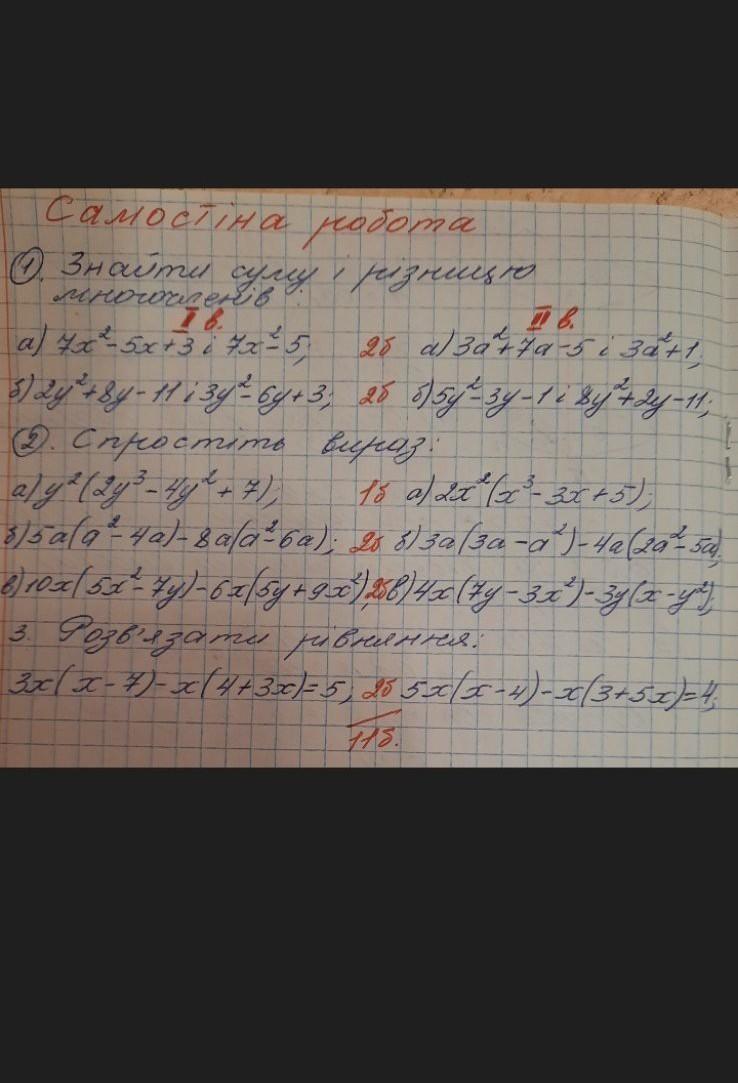 Самостіна робота
①. Знайти суму і різницю
многочленів:
I в. II в.
а) 7x²-5x+3 і 7x²-5; 2б а) 3a²+7a-5 і 3a²+1;
б) 2y²+8y-11 і 3y²-6y+3; 2б б) 5y²-3y-1 і 8y²+2y-11;
②. Спростіть вираз:
а) y²(2y³-4y²+7); 1б а) 2x²(x³-3x+5);
б) 5a(a²-4a)-8a(a²-6a); 2б б) 3a(3a-a²)-4a(2a²-5a);
в) 10x(5x²-7y)-6x(5y+9x²); 2б в) 4x(7y-3x²)-3y(x-y²);
3. Розв'язати рівняння:
3x(x-7)-x(4+3x)=5; 2б 5x(x-4)-x(3+5x)=4;
11б.